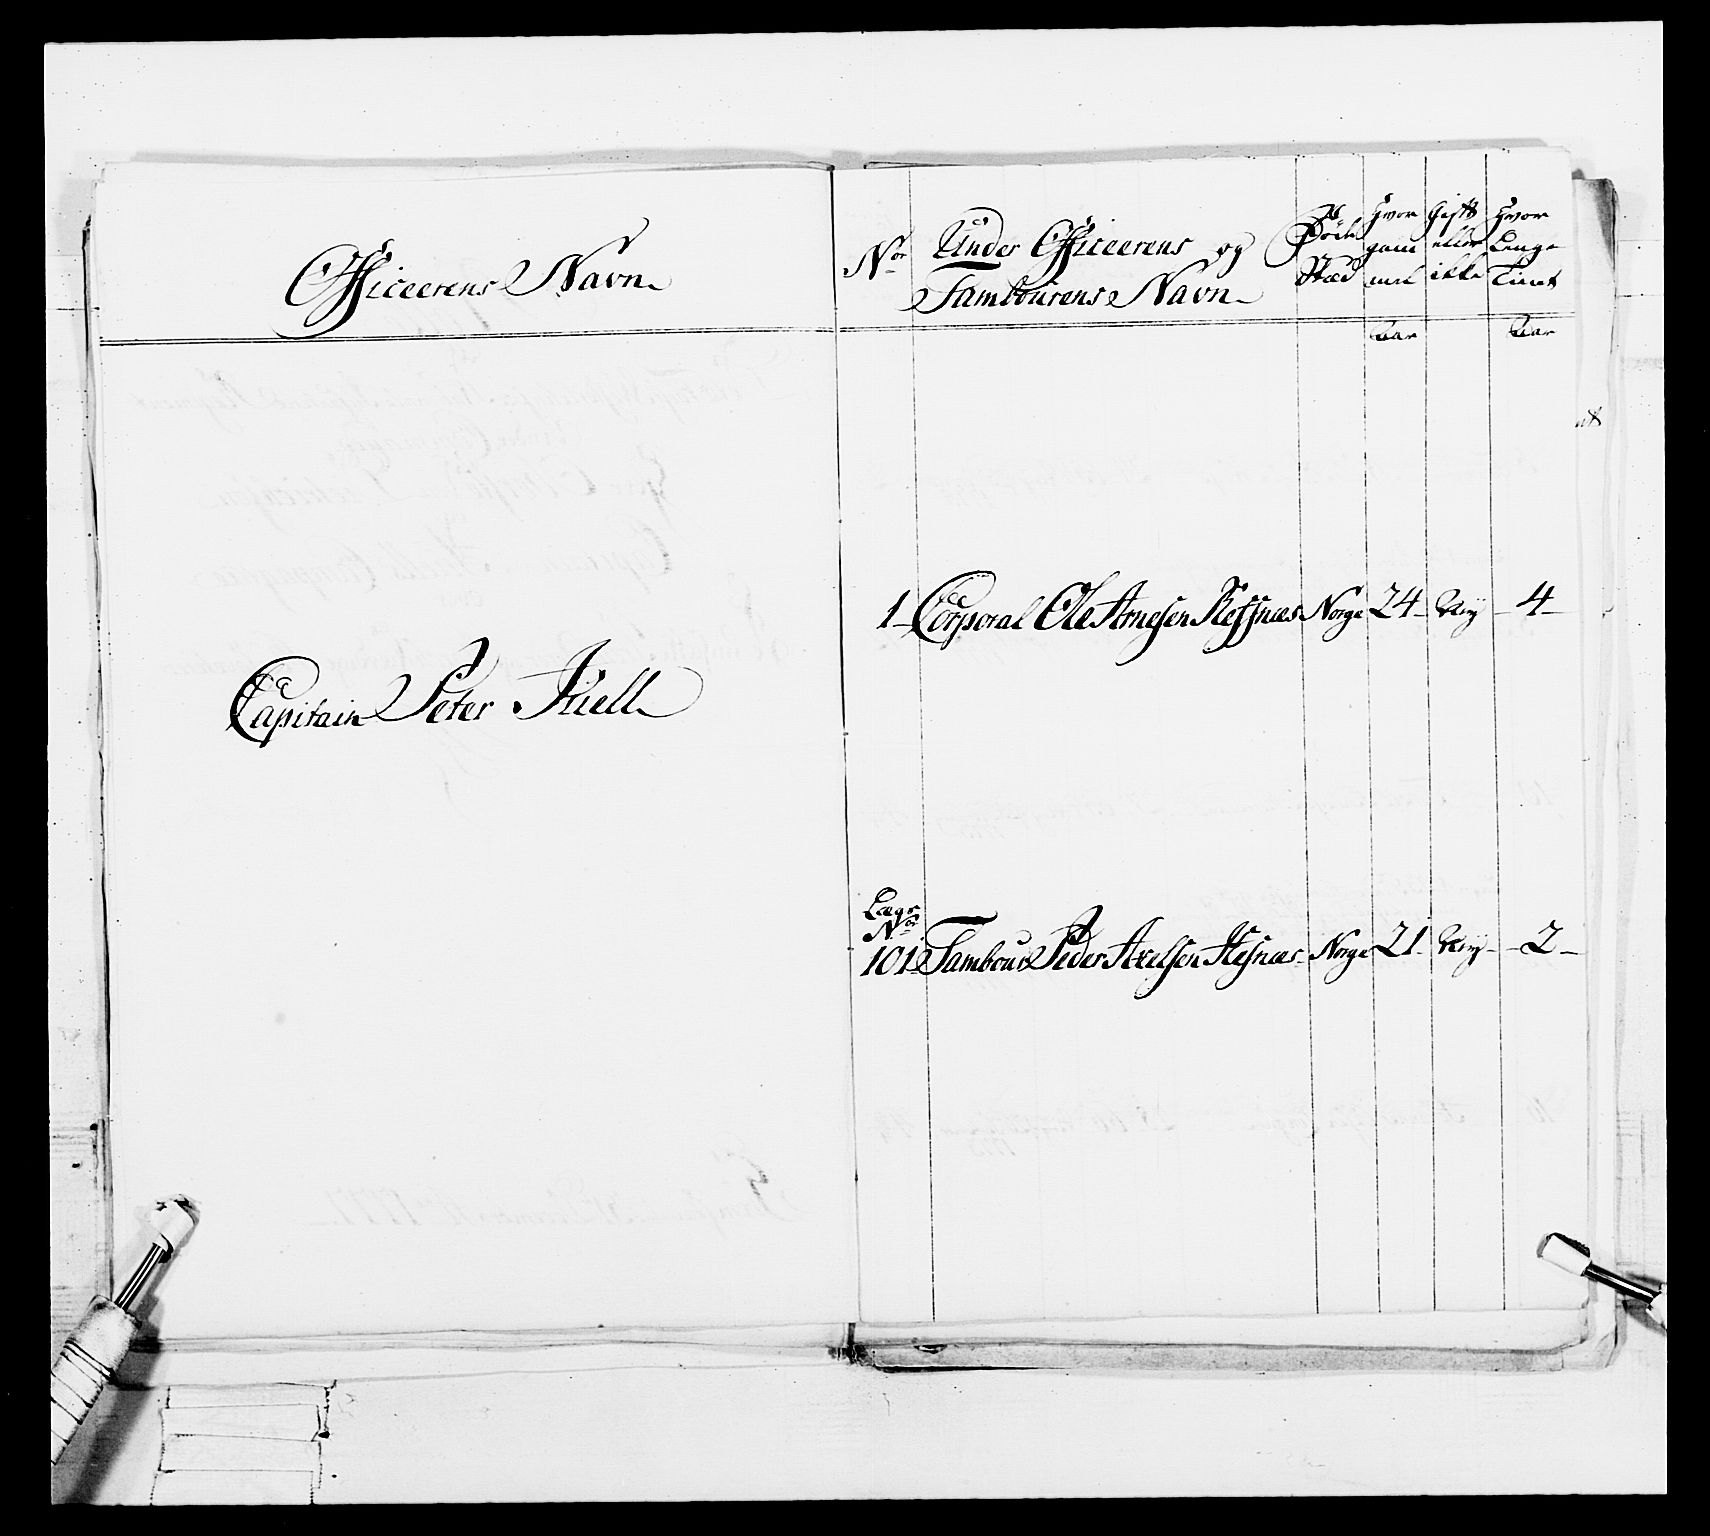 Officeerens Navn
Capitain Peter Kiell
Nor Under Officeerens og Tambourens Navn
Föde Stæd
Hvor gam mel
Gift eller ikke
Hvor Lenge Tient
Aar Aar
1 Corporal Ole Arnesen Refsnæs Norge 24 Nej 4
Lægs
Nor
101 Tambour Peder Axelsen Hesnæs Norge 21 Nej 2